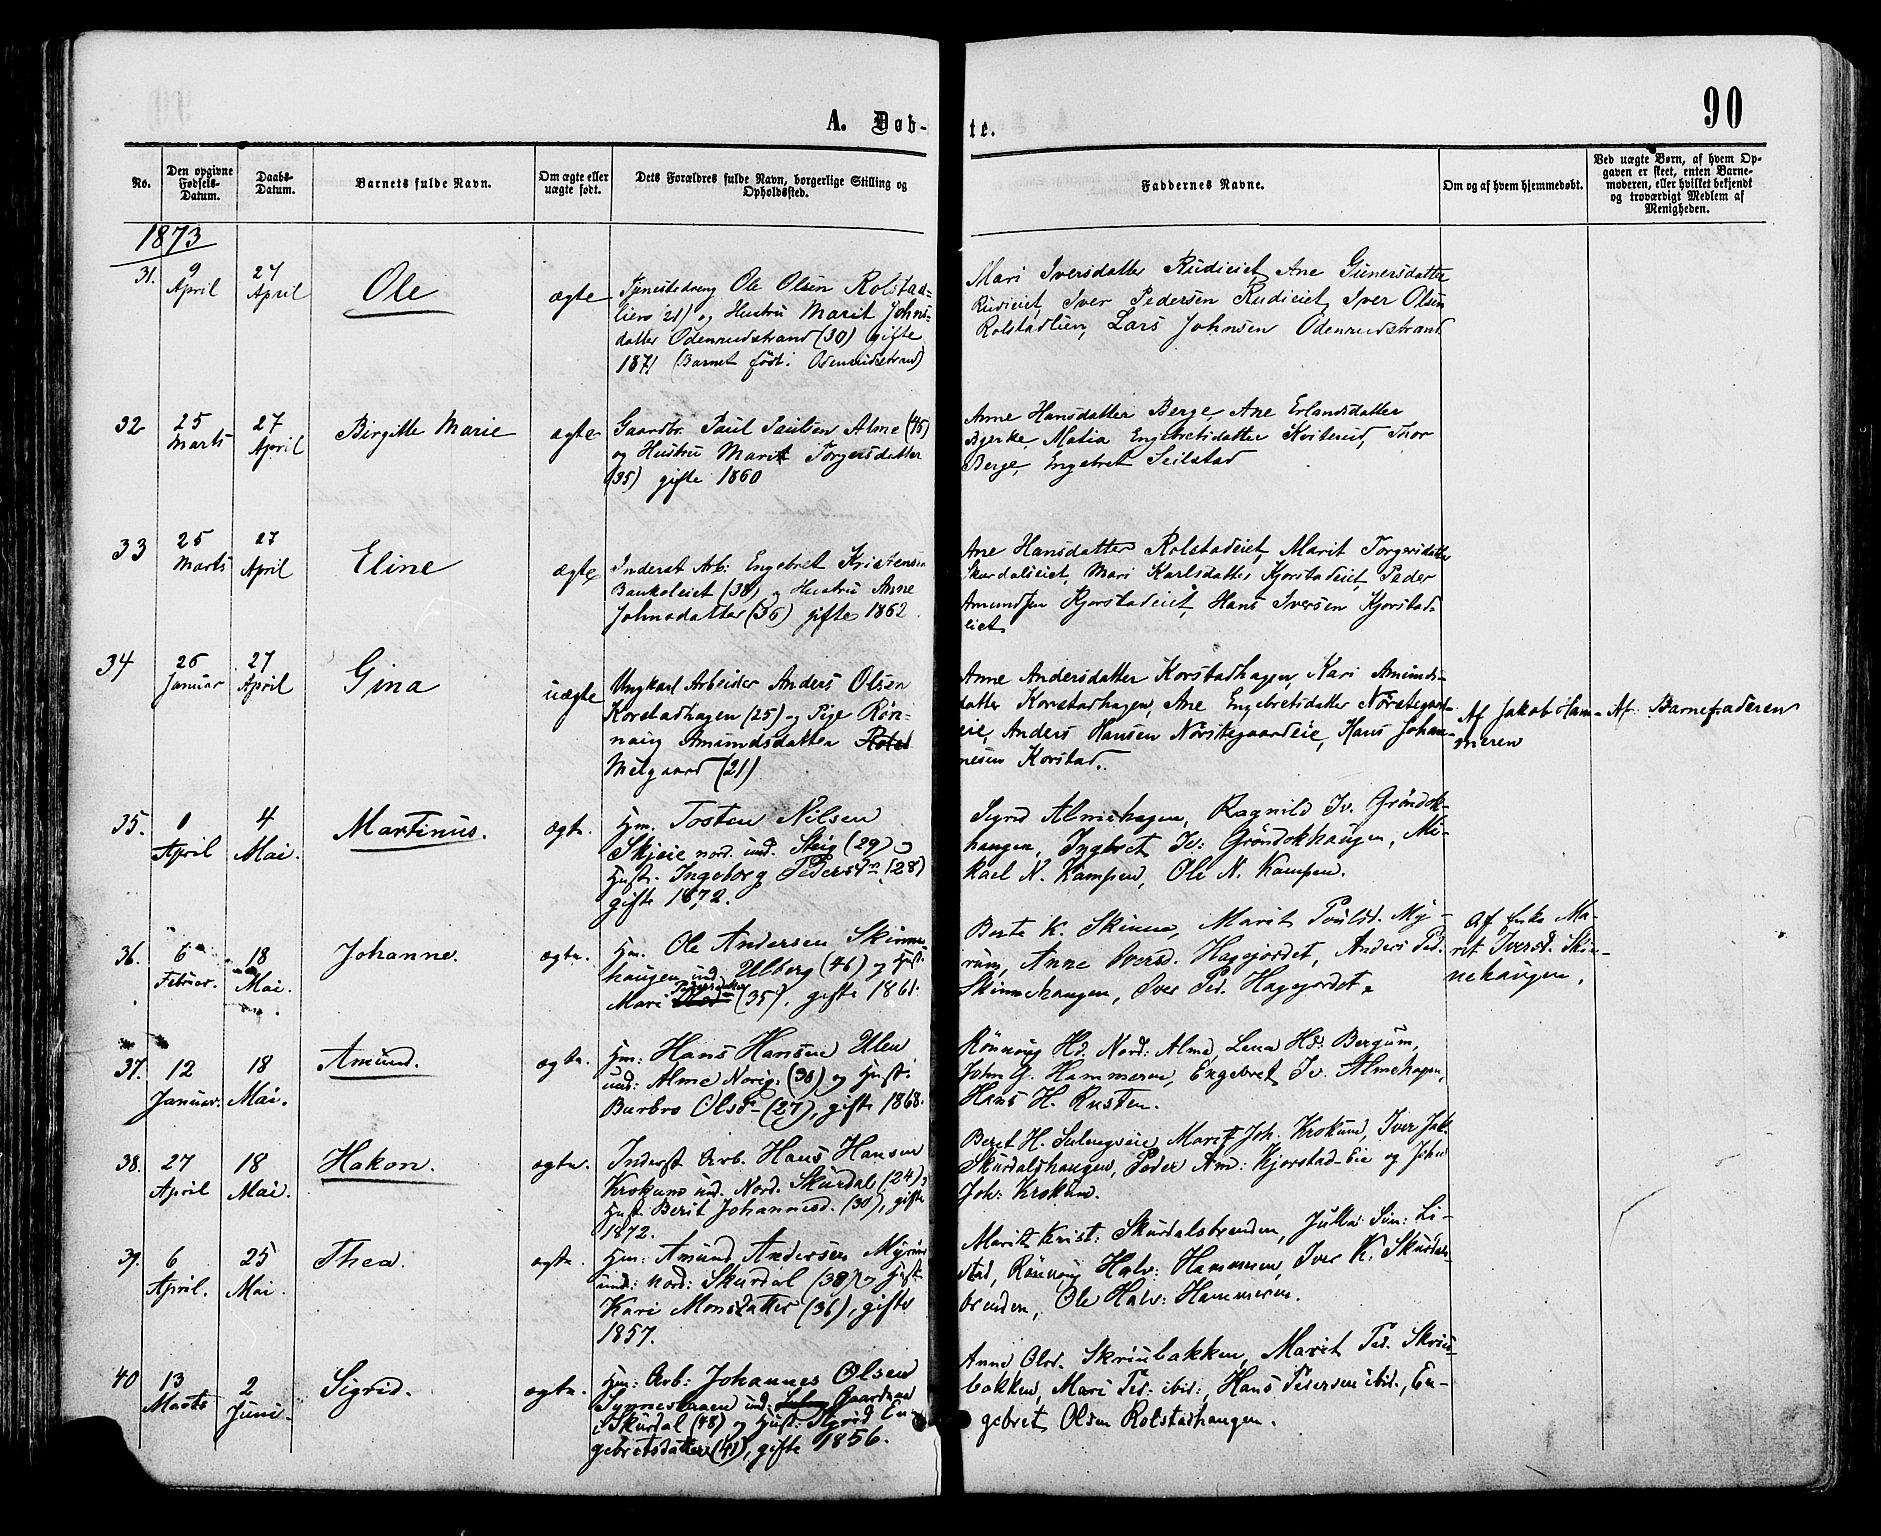 90
A. Døb-te.
No.
Den opgivne Fødsels-Datum.
Daabs-Datum.
Barnets fulde Navn.
Om ægte eller uægte født.
Dets Forældres fulde Navn, borgerlige Stilling og Opholdssted.
Faddernes Navne.
Om og af hvem hjemmedøbt.
Ved uægte Børn, af hvem Op-
gaven er skeet, enten Barne-
moderen, eller hvilket bekjendt
og troværdigt Medlem af
Menigheden.
1873
31. 9 April 27 April Ole ægte
Tjenestedreng Ole Olsen Rolstad-
lien (21) og Hustru Marit Johns-
datter Odenrudstrand (30) gifte
1871 (Barnet født i Odenrudstrand)
Mari Iversdatter Rudieiet, Ane Gunersdatter
Rudieiet, Iver Pedersen Rudieiet, Iver Olsen
Rolstadlien, Lars Johnsen Odenrudstrand
32 25 Marts 27 April Birgitte Marie ægte
Gaardbr. Paul Paulsen Alme (45)
og Hustru Marit Torgersdatter
(35) gifte 1860
Anne Hansdatter Berge, Ane Erlandsdatter
Bjerke, Matia Engebretsdatter Kviterud, Thor
Berge, Engebret Seilstad
33 25 Marts 27 April Eline ægte
Inderst Arb: Engebret Kristensen
Baukoleiet (38) og Hustru Anne
Johnsdatter (36) gifte 1862.
Ane Hansdatter Rolstadeiet, Marit Torgersdatter
Skurdalseiet, Mari Karlsdatter Kjorstadeiet, Peder
Amundsen Kjorstadeiet, Hans Iversen Kjorstad-
eiet
34 26 Januar 27 April Gina uægte
Ungkarl Arbeider Anders Olsen
Korstadhagen (25) og Pige Røn-
naug Amundsdatter
Melgaard (21)
Anne Andersdatter Korstadhagen, Kari Amunds-
datter Korstadhagen, Ane Engebretsdatter Nørstegaard-
eie, Anders Hansen Nørstegaardeie, Hans Johan-
nesen Korstad.
Af Jakob Ham-
meren
Af Barnefaderen
35. 1 April 4 Mai. Martinus. ægte.
Hm. Tosten Nilsen
Skjeie nord. und. Steig (29) og
Hust. Ingeborg Pedersd. (28)
gifte 1872.
Sigrid Almehagen, Ragnild Iv. Grøndok-
haugen, Ingebret Iv: Grøndokhaugen, Mi-
kael N. Kampen, Ole N. Kampen.
36. 6 Februar. 18 Mai. Johanne. ægte.
Hm. Ole Andersen Skinne-
haugen und. Ulberg (46) og Hust.
Mari (35), gifte 1861.
Berte K. Skinne, Marit Poulsd. My-
rum, Anne Iversd. Hagejordet, Anders Ped.
Skinnehaugen, Iver Ped. Hagejordet.
Af Enke Ma-
rit Iversd. Skin-
nehaugen.
37. 12 Januar. 18 Mai. Amund. ægte.
Hm: Hans Hansen Ulen
und: Alme Norig. (30) og Hust.
Barbro Olsd. (27), gifte 1868.
Rönnoug Hd. Nord: Alme, Lena Hd: Bergum,
John G. Hammeren, Engebret Iv. Almehagen,
Hans H. Rusten.
38. 27 April 18 Mai. Hakon. ægte.
Inderst Arb. Hans Hansen
Krokum und. Nord. Skurdal (24) og
Hust. Berit Johannesd. (30), gifte
1872.
Beret H. Sulengseie, Marit Joh. Krokum, Iver Jak.
Skurdalshaugen, Peder Am: Kjorstad-Eie og John
Joh: Krokum.
39. 6 April. 25 Mai. Thea. ægte.
Hm: Amund Andersen Myrum
und: Nord: Skurdal (38) og Hust.
Kari Monsdatter (36), gifte
1857.
Marit Krist: Skurdalsbrenden, Julia Sim: Li-
stad, Rönnoug Halv: Hammeren, Iver K. Skurdals-
brenden, Ole Halv: Hammeren.
40 13 Marts 2 Juni. Sigrid. ægte.
Hm: Arb: Johannes Olsen
und: Gaardnær
i Skurdal (48) og Hust. Sigrid En-
gebretsdatter (41), gifte 1856.
Anne Olsd. Skriubakken, Marit Ped. Skriu-
bakken, Mari Ped: ibid:, Hans Pedersen ibid., En-
gebret Olsen Rolstadhaugen.